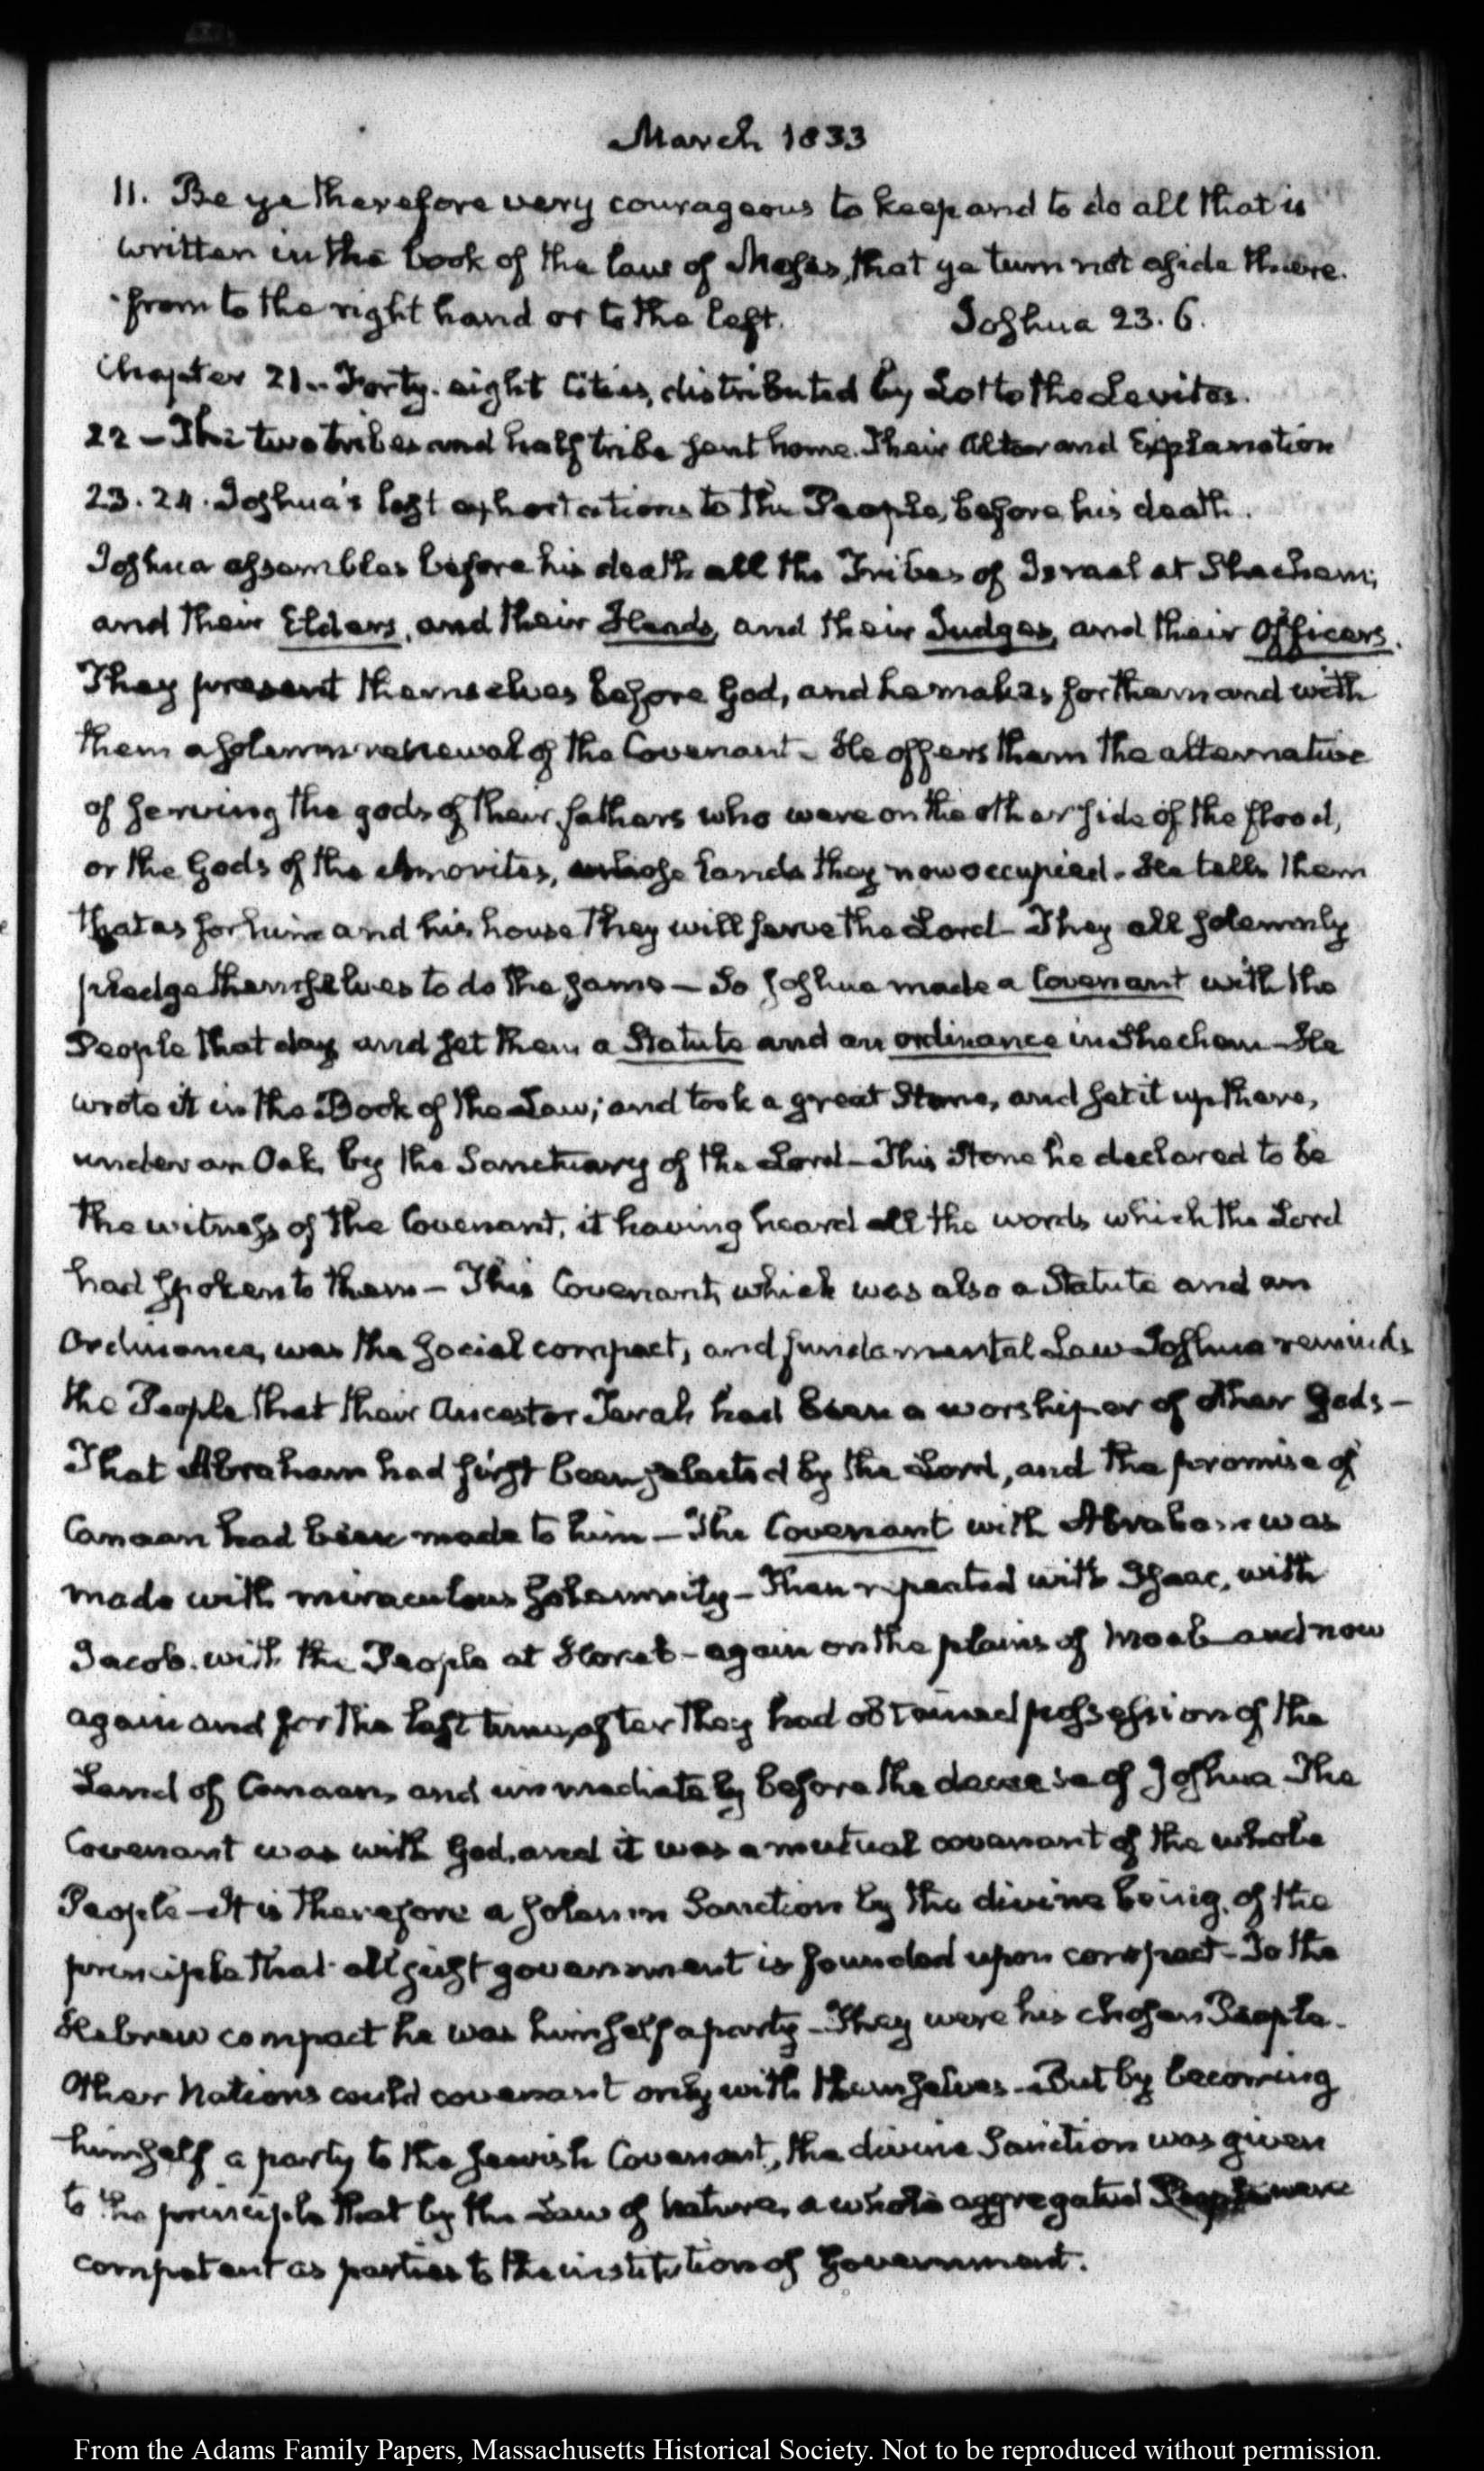 March 1833
11. Be ye therefore very courageous to keep and to do all that is
written in the book of the law of Moses, that ye turn not aside there-
from to the right hand or to the left. Joshua 23. 6.
Chapter 21 - Forty-eight Cities, distributed by Lot to the Levites.
22 - The two tribes and half tribe sent home. Their Altar and Explanation
23. 24. Joshua's last exhortations to the People, before his death.
Joshua assembles before his death all the Tribes of Israel at Shechem;
and their Elders, and their Heads, and their Judges, and their Officers.
They present themselves before God, and he makes for them and with
them a solemn renewal of the Covenant - He offers them the alternative
of serving the gods of their fathers who were on the other side of the flood,
or the Gods of the Amorites, whose lands they now occupied. He tells them
that as for him and his house they will serve the Lord - They all solemnly
pledge themselves to do the same - So Joshua made a Covenant with the
People that day and set them a Statute and an ordinance in Shechem - He
wrote it in the Book of the Law; and took a great Stone, and set it up there,
under an Oak, by the Sanctuary of the Lord - This Stone he declared to be
the witness of the Covenant, it having heard all the words which the Lord
had spoken to them - This Covenant, which was also a Statute and an
Ordinance, was the social compact, and fundamental Law - Joshua reminds
the People that their Ancestor Terah had been a worshiper of other Gods -
That Abraham had first been selected by the Lord, and the promise of
Canaan had been made to him - The Covenant with Abraham was
made with miraculous solemnity - Then repeated with Isaac, with
Jacob, with the People at Horeb - again on the plains of Moab - and now
again and for the last time, after they had obtained possession of the
Land of Canaan, and immediately before the decease of Joshua - The
Covenant was with God, and it was a mutual covenant of the whole
People - It is therefore a solemn Sanction by the divine being, of the
principle that all just government is founded upon compact - To the
Hebrew compact he was himself a party - They were his chosen People -
Other Nations could covenant only with themselves - But by becoming
himself a party to the Jewish Covenant, the divine Sanction was given
to the principle that by the Law of Nature, a whole aggregated People were
competent as parties to the institution of Government.
From the Adams Family Papers, Massachusetts Historical Society. Not to be reproduced without permission.